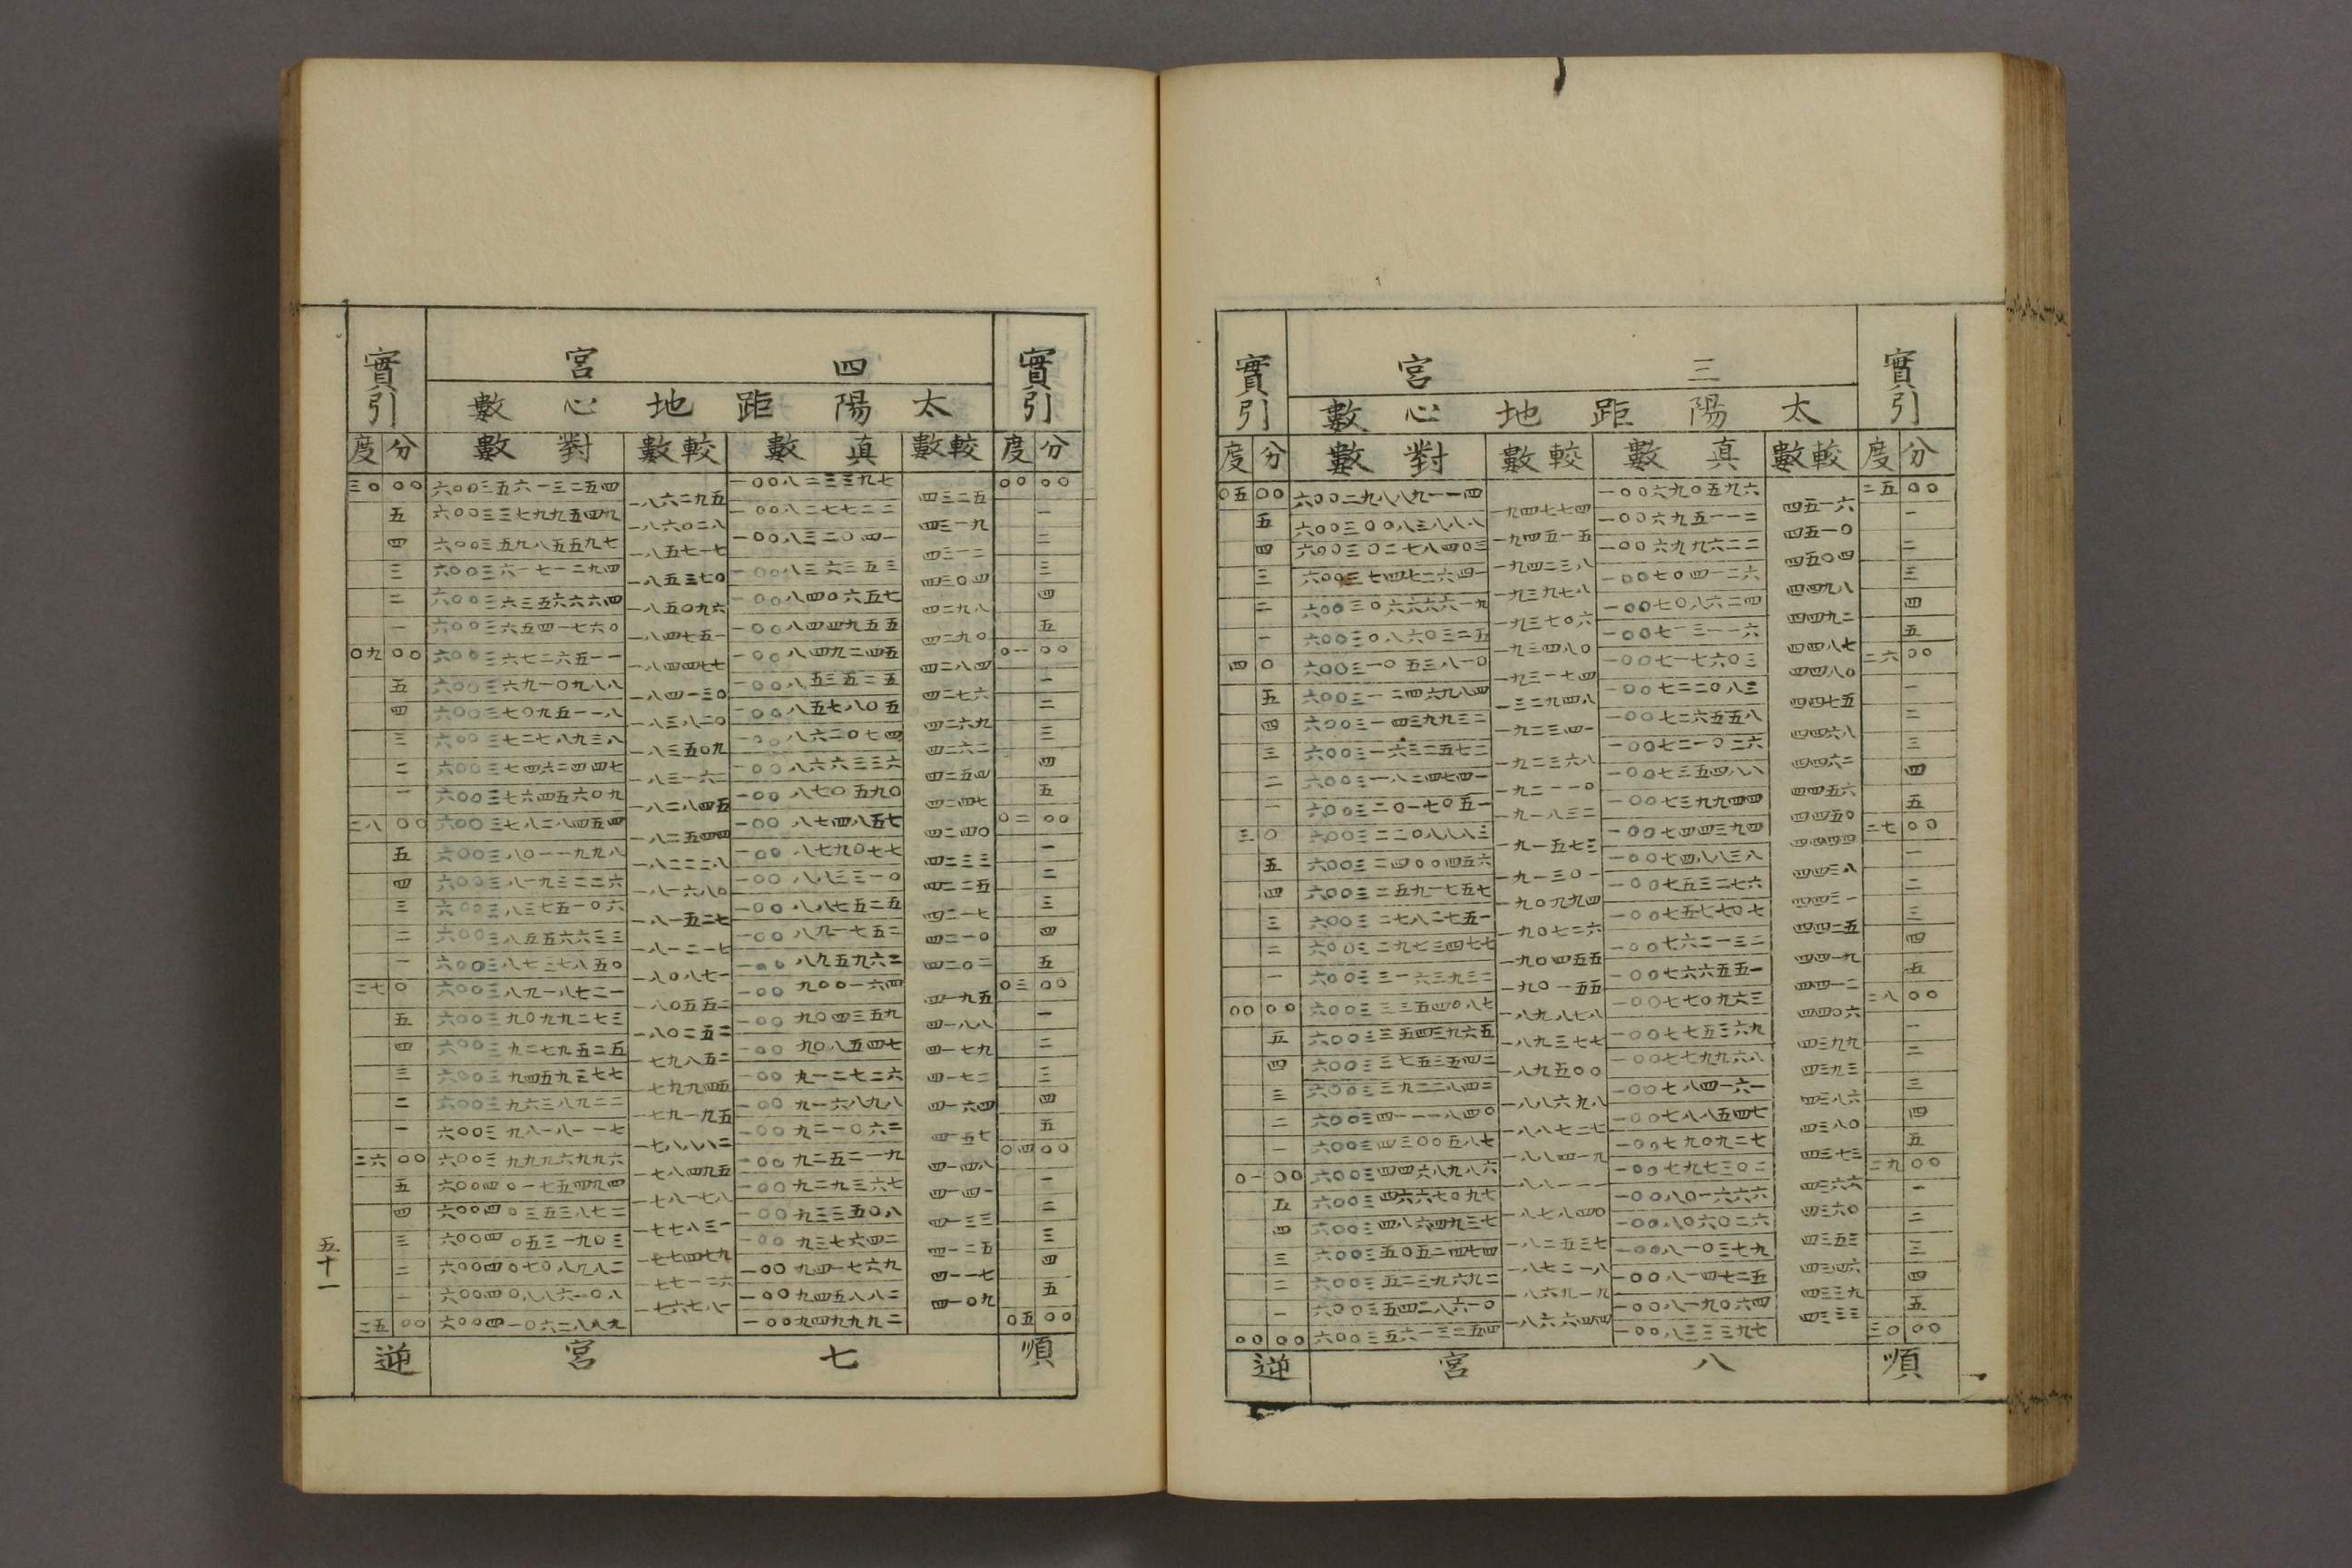 實引 三宮 實引
太陽距地心數
度分 較數 真數 較數 對數 度分
二五 〇〇 一〇〇六九〇五九六 六〇〇二九八八九一一四 〇五 〇〇
四五一六 一九四七七四
一 一〇〇六九五一一二 六〇〇三〇〇八三八八八 五
四五一〇 一九四五一五
二 一〇〇六九九六二二 六〇〇三〇二七八四〇三 四
四五〇四 一九四二三八
三 一〇〇七〇四一二六 六〇〇三七四七二六四一 三
四四九八 一九三九七八
四 一〇〇七〇八六二四 六〇〇三〇六六六六一九 二
四四九二 一九三七〇六
五 一〇〇七一三一一六 六〇〇三〇八六〇三二五 一
四四八七 一九三四八〇
二六 〇〇 一〇〇七一七六〇三 六〇〇三一〇五三八一〇 四 〇
四四八〇 一九三一七四
一 一〇〇七二二〇八三 六〇〇三一二四六九八四 五
四四七五 一三二九四八
二 一〇〇七二六五五八 六〇〇三一四三九九三二 四
四四六八 一九二三四一
三 一〇〇七二一〇二六 六〇〇三一六三二五七二 三
四四六二 一九二三六八
四 一〇〇七三五四八八 六〇〇三一八二四七四一 二
四四五六 一九二一一〇
五 一〇〇七三九九四四 六〇〇三二〇一七〇五一 一
四四五〇 一九一八三二
二七 〇〇 一〇〇七四四三九四 六〇〇三二二〇八八八三 三 〇
四四四四 一九一五七三
一 一〇〇七四八八三八 六〇〇三二四〇〇四五六 五
四四三八 一九一三〇一
二 一〇〇七五三二七六 六〇〇三二五九一七五七 四
四四三一 一九〇九九四
三 一〇〇七五七七〇七 六〇〇三二七八二七五一 三
四四二五 一九〇七二六
四 一〇〇七六二一三二 六〇〇三二九七三四七七 二
四四一九 一九〇四五五
五 一〇〇七六六五五一 六〇〇三三一六三九三二 一
四四一二 一九〇一五五
二八 〇〇 一〇〇七七〇九六三 六〇〇三三三五四〇八七 〇〇 〇〇
四四〇六 一八九八七八
一 一〇〇七七五三六九 六〇〇三三五四三九六五 五
四三九九 一八九三七七
二 一〇〇七七九九六八 六〇〇三三七五三五四二 四
四三九三 一八九五〇〇
三 一〇〇七八四一六一 六〇〇三三九二二八四二 三
四三八六 一八八六九八
四 一〇〇七八八五四七 六〇〇三四一一一八四〇 二
四三八〇 一八八七二七
五 一〇〇七九〇九二七 六〇〇三四三〇〇五八七 一
四三七三 一八八四一九
二九 〇〇 一〇〇七九七三〇二 六〇〇三四四六八九八六 〇一 〇〇
四三六六 一八八一一一
一 一〇〇八〇一六六六 六〇〇三四六六七〇九七 五
四三六〇 一八七八四〇
二 一〇〇八〇六〇二六 六〇〇三四八六四九三七 四
四三五三 一八二五三七
三 一〇〇八一〇三七九 六〇〇三五〇五二四七四 三
四三四六 一八七二一八
四 一〇〇八一四七二五 六〇〇三五二三九六九二 二
四三三九 一八六九一九
五 一〇〇八一九〇六四 六〇〇三五四二八六一〇 一
四三三三 一八六六四四
三〇 〇〇 一〇〇八三三三九七 六〇〇三五六一三二五四 〇〇 〇〇
順 八宮 逆
實引 四宮 實引
太陽距地心數
度分 較數 真數 較數 對數 度分
〇〇 〇〇 一〇〇八二三三九七 六〇〇三五六一三二五四 三〇 〇〇
四三二五 一八六二九五
一 一〇〇八二七七二二 六〇〇三三七九九五四九 五
四三一九 一八六〇二八
二 一〇〇八三二〇四一 六〇〇三五九八五五九七 四
四三一二 一八五七一七
三 一〇〇八三六三五三 六〇〇三六一七一二九四 三
四三〇四 一八五三七〇
四 一〇〇八四〇六五七 六〇〇三六三五六六六四 二
四二九八 一八五〇九六
五 一〇〇八四四九五五 六〇〇三六五四一七六〇 一
四二九〇 一八四七五一
〇一 〇〇 一〇〇八四九二四五 六〇〇三六七二六五一一 〇九 〇〇
四二八四 一八四四七七
一 一〇〇八五三五二五 六〇〇三六九一〇九八八 五
四二七六 一八四一三〇
二 一〇〇八五七八〇五 六〇〇三七〇九五一一八 四
四二六九 一八三八二〇
三 一〇〇八六二〇七四 六〇〇三七二七八九三八 三
四二六二 一八三五〇九
四 一〇〇八六六三三六 六〇〇三七四六二四四七 二
四二五四 一八三一六二
五 一〇〇八七〇五九〇 六〇〇三七六四五六〇九 一
四二四七 一八二八四五
〇二 〇〇 一〇〇八七四八五七 六〇〇三七八二八四五四 二八 〇〇
四二四〇 一八二五四四
一 一〇〇八七九〇七七 六〇〇三八〇一一九九八 五
四二三三 一八二二二八
二 一〇〇八八三三一〇 六〇〇三八一九三二二六 四
四二二五 一八一六八〇
三 一〇〇八八七五二五 六〇〇三八三七五一〇六 三
四二一七 一八一五二七
四 一〇〇八九一七五二 六〇〇三八五五六六三三 二
四二一〇 一八一二一七
五 一〇〇八九五九六二 六〇〇三八七三七八五〇 一
四二〇二 一八〇八七一
〇三 〇〇 一〇〇九〇〇一六四 六〇〇三八九一八七二一 二七 〇
四一九五 一八〇五五二
一 一〇〇九〇四三五九 六〇〇三九〇九九二七三 五
四一八八 一八〇二五二
二 一〇〇九〇八五四七 六〇〇三九二七九五二五 四
四一七九 一七九八五二
三 一〇〇九一二七二六 六〇〇三九四五九三七七 三
四一七二 一七九九四五
四 一〇〇九一六八九八 六〇〇三九六三八九二二 二
四一六四 一七九一九五
五 一〇〇九二一〇六二 六〇〇三九八一八一一七 一
四一五七 一七八八八二
〇四 〇〇 一〇〇九二五二一九 六〇〇三九九九六九九六 二六 〇〇
四一四八 一七八四九五
一 一〇〇九二九三六七 六〇〇四〇一七五四九四 五
四一四一 一七八一七八
二 一〇〇九三三五〇八 六〇〇四〇三五三八七二 四
四一三三 一七七八三一
三 一〇〇九三七六四二 六〇〇四〇五三一九〇三 三
四一二五 一七七四七九
四 一〇〇九四一七六九 六〇〇四〇七〇八九八二 二
四一一七 一七七一二六
五 一〇〇九四五八八二 六〇〇四〇八八六一〇八 一
四一〇九 一七六七八一
〇五 〇〇 一〇〇九四九九九二 六〇〇四一〇六二八八九 二五 〇〇
順 七宮 逆
五十一